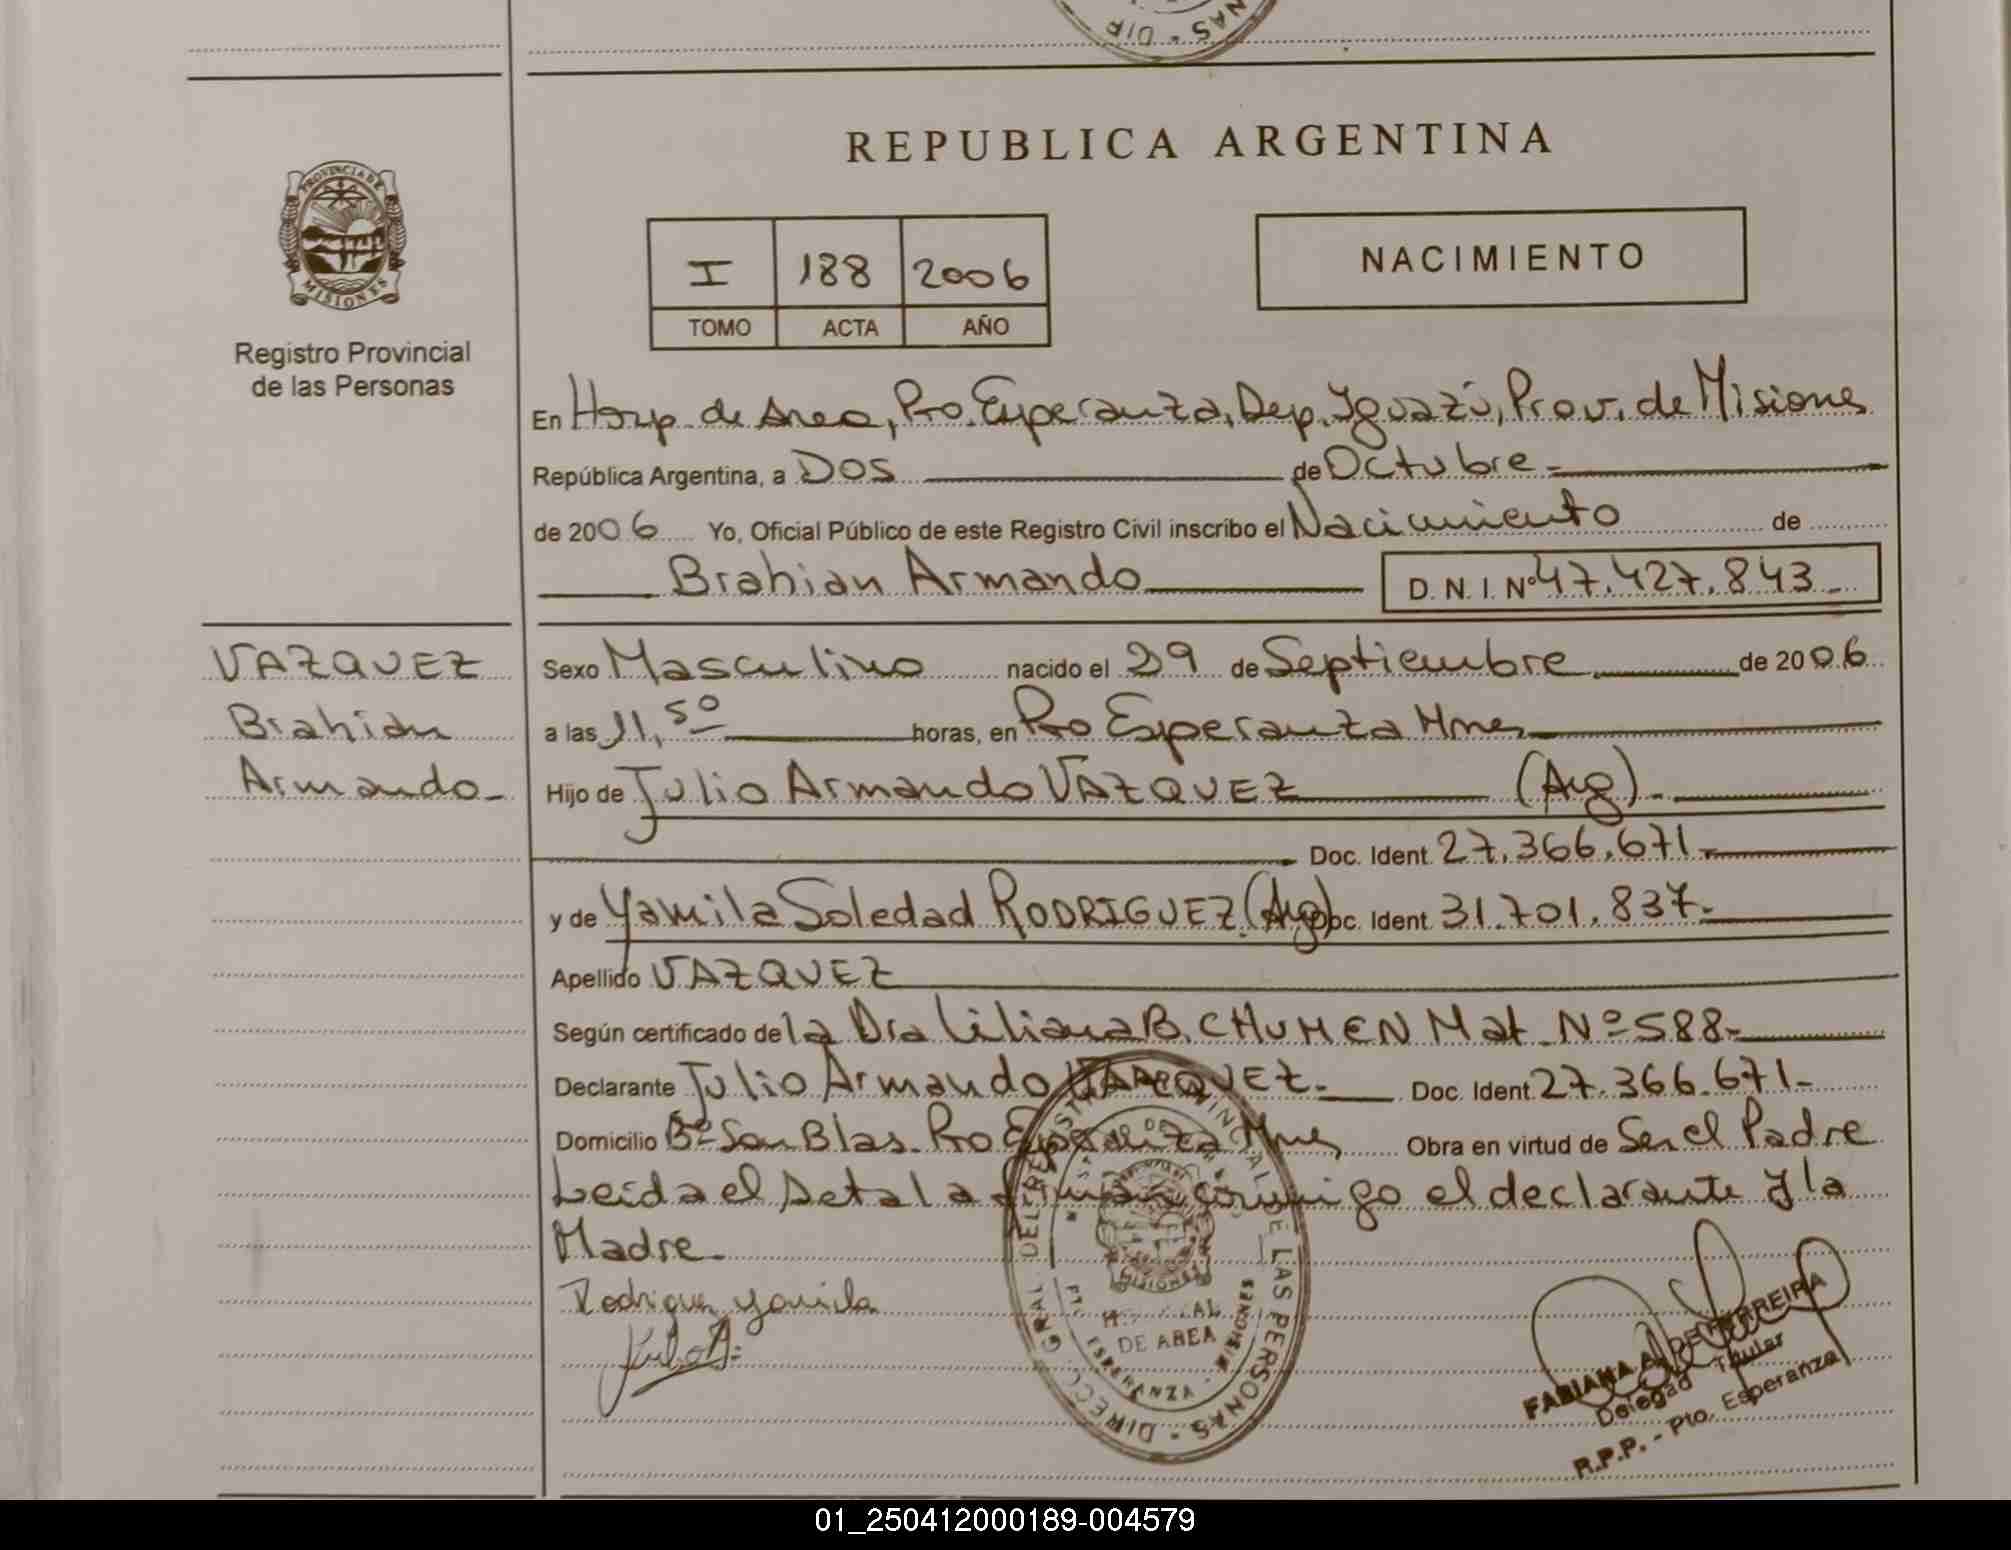 NAS - DIR
REPUBLICA ARGENTINA
PROVINCIA DE
MISIONES
Registro Provincial
de las Personas
I 188 2006
TOMO ACTA AÑO
NACIMIENTO
En Hosp. de Area, Pto. Esperanza, Dep. Iguazú, Prov. de Misiones
República Argentina, a Dos de Octubre -
de 2006 Yo, Oficial Público de este Registro Civil inscribo el Nacimiento de
Brahian Armando D. N. I. Nº 47.427.843 -
VAZQUEZ
Brahian
Armando -
Sexo Masculino nacido el 29 de Septiembre de 2006
a las 11,50 horas, en Pto Esperanza Mnes
Hijo de Julio Armando VAZQUEZ (Arg) -
Doc. Ident. 27.366.671 -
y de Yamila Soledad RODRIGUEZ (Arg) Doc. Ident. 31.701.837 -
Apellido VAZQUEZ
Según certificado de la Dra Liliana B. CHUMEN Mat. Nº 588 -
Declarante Julio Armando VAZQUEZ - Doc. Ident. 27.366.671 -
Domicilio Bº San Blas. Pto Esperanza Mnes Obra en virtud de Ser el Padre
Leida el Acta la firman conmigo el declarante y la
Madre -
Rodriguez Yamila
Julio A:
DIRECC. GRAL. DEL REGISTRO PROVINCIAL DE LAS PERSONAS
MISIONES
DE AREA
ESPERANZA - MISIONES
FABIANA A. DE FERREIRA
Delegad Titular
R.P.P. - Pto. Esperanza
01_250412000189-004579